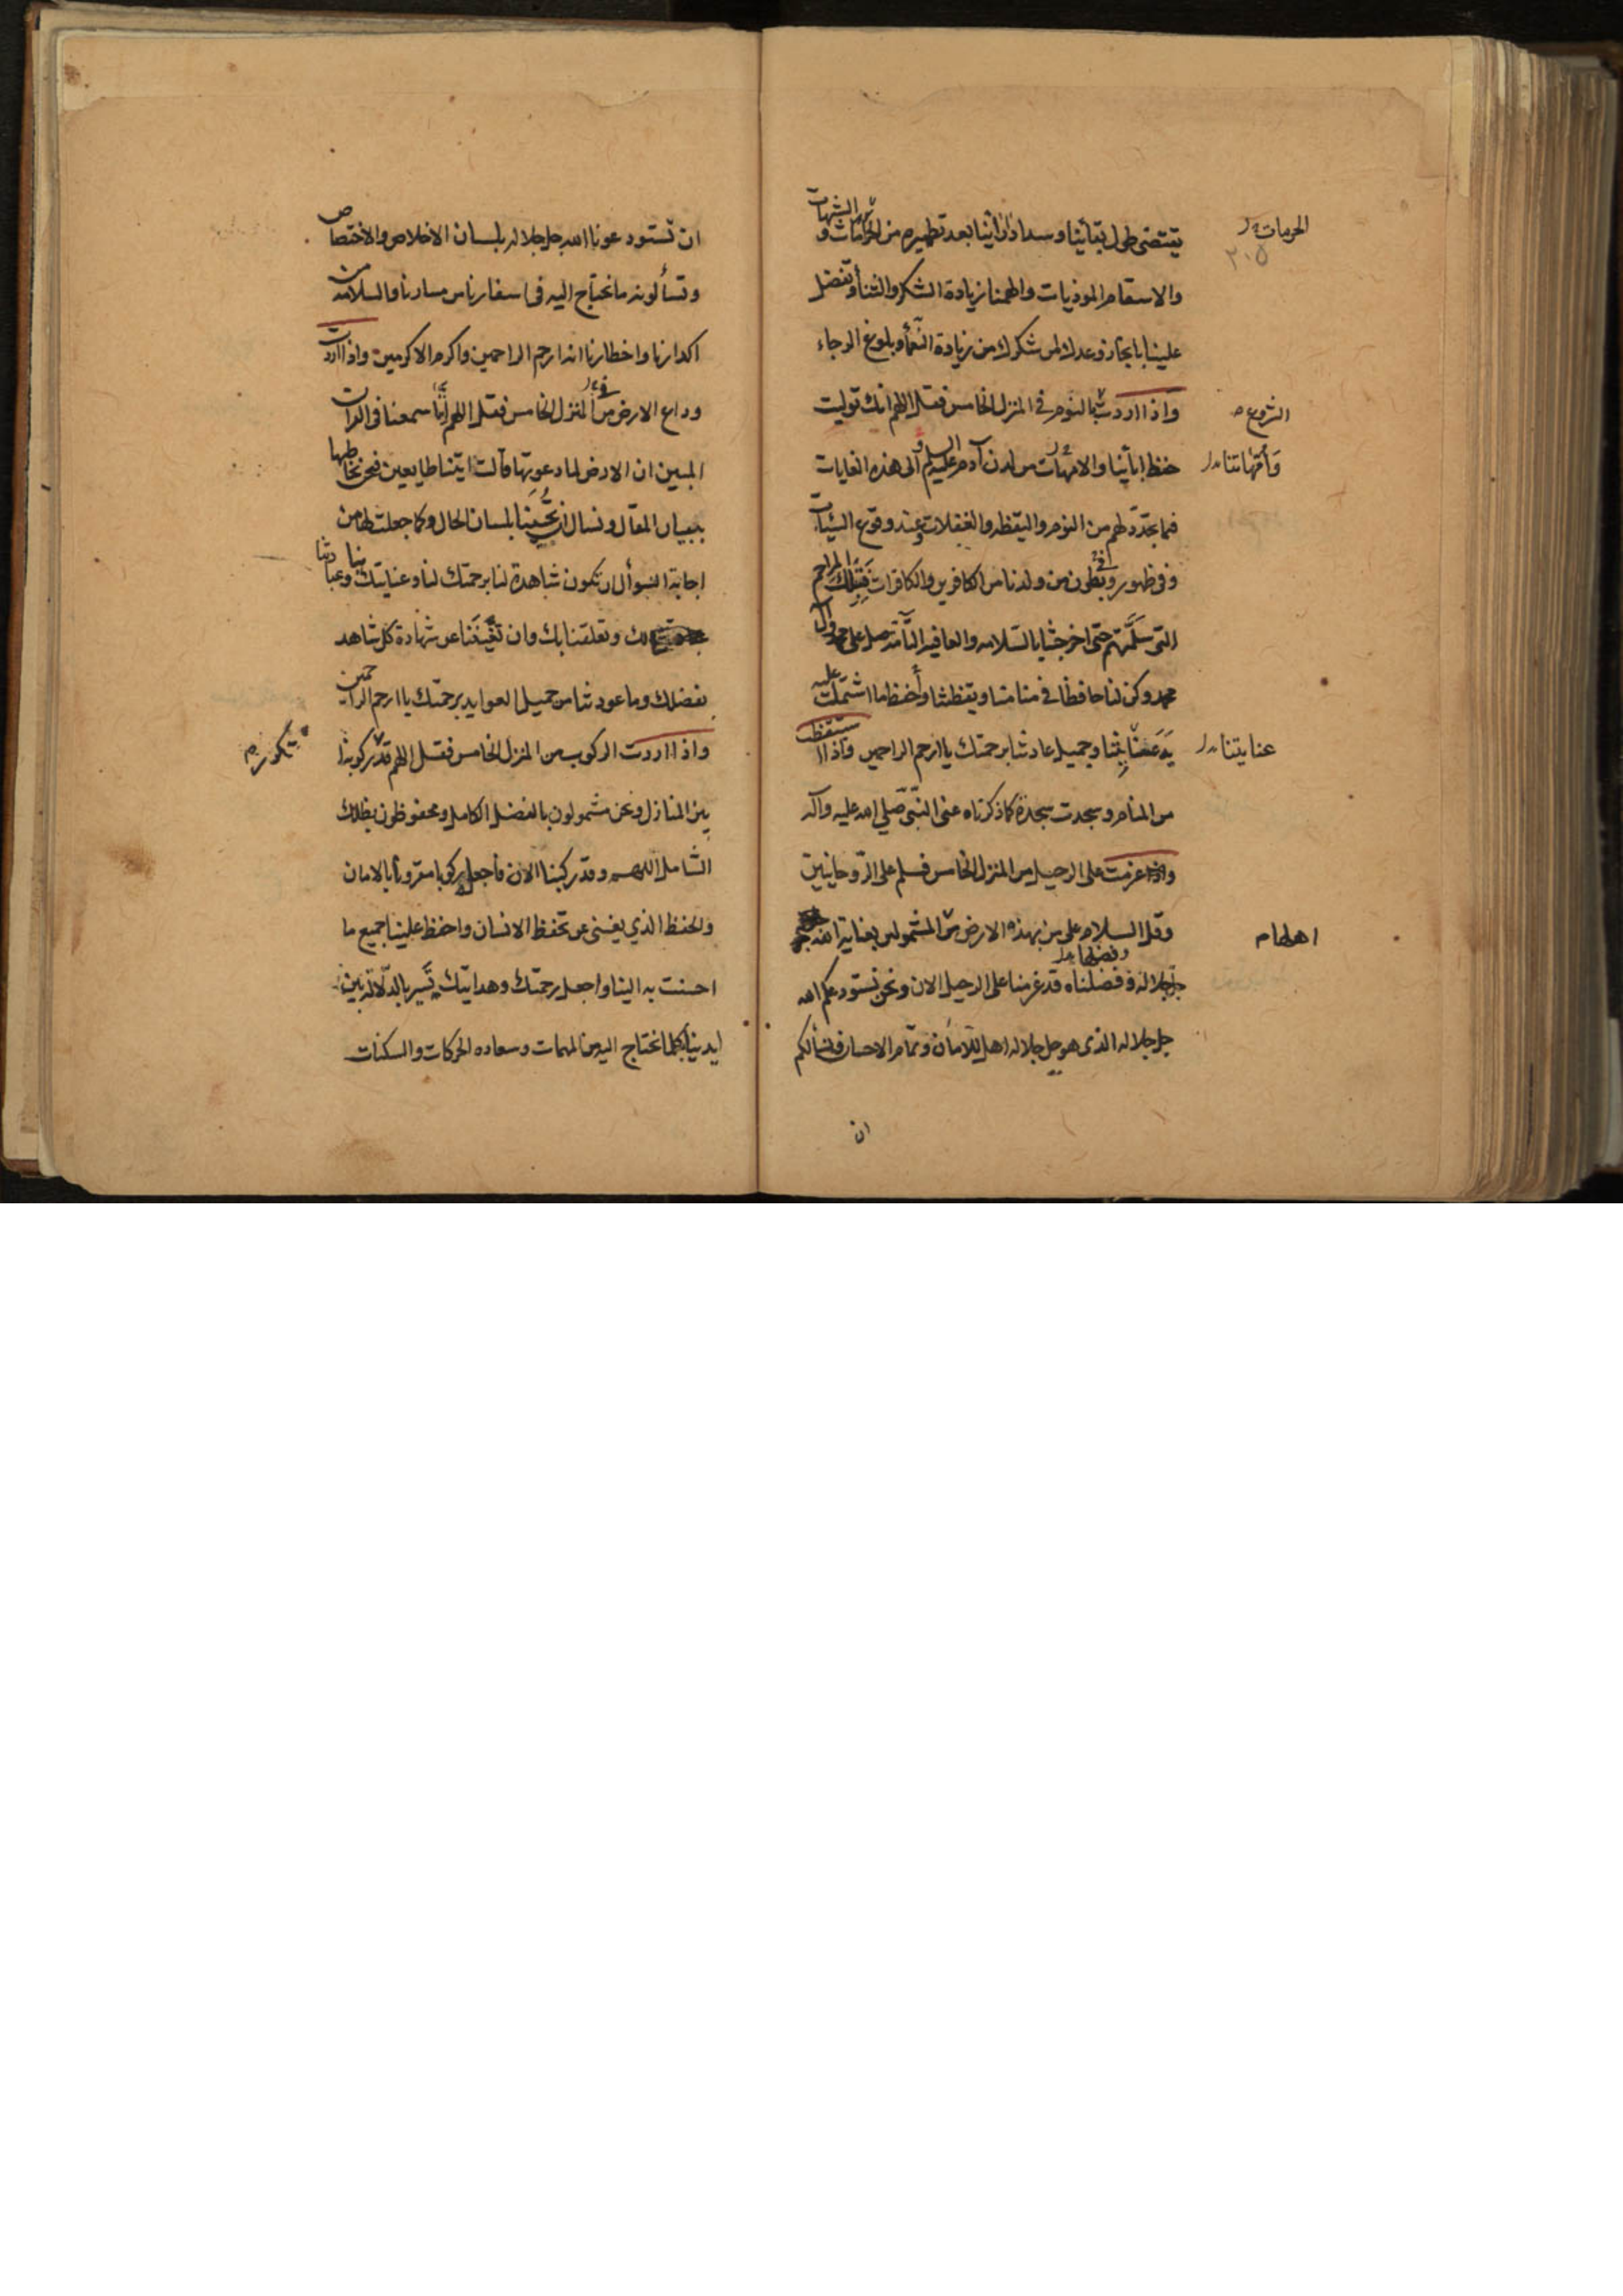 يقتضى طول بقائنا وسداد ارائنا بعد تطهيره من الحرامات و الشبهات
الحرمات
٢٠٥
والاسقام الموذيات والهمنا زيادة الشكر والثناء وتفضل
علينا بانجاز وعدك لمن شكرك من زيادة النعماء وبلوغ الرجاء
واذا اردت النوم فى المنزل الخامس فقل اللهم انك توليت
الشروع
حفظ ابائنا والامهات من لدن آدم عليه السلام والى هذه الغايات
وأمهاتنا
فيما يتجدد لهم من النوم واليقظه والغفلات وعند وقوع السيئات
وفى ظهور وفى بطون من ولدنا من الكافرين والكافرات فبتلك المراحم
التى سلمتهم حتى اخرجتنا بالسلامه والعافيه التامة صل على محمد وال
محمد وكن لنا حافظا فى منامنا ويقظتنا وأحفظ ما اشتملت عليه
وجميل عادتنا برحمتك يا ارحم الراحمين واذا استيقظت
عنايتنا
من المنام وسجدت سجدة كما ذكرناه عن النبى صلى الله عليه وآله
واذا عزمت على الرحيل من المنزل الخامس فسلم على الروحانيين
وقل السلام على من بهذه الارض من المشمولين بعناية الله
اهلها
جل جلاله وفضلناه قد عزمنا على الرحيل الان ونحن نستودعكم الله
جل جلاله الذى هو جل جلاله اهل للامان وتمام الاحسان فنسألكم
ان
ان تستودعونا الله جل جلاله بلسان الاخلاص والاختصاص
وتسألونه ما نحتاج اليه فى اسفارنا من مسارنا والسلامه من
اكدارنا واخطارنا انه ارحم الراحمين واكرم الاكرمين واذا اردت
وداع الارض من المنزل الخامس فقل اللهم إننا سمعنا فى القرآن
المبين ان الارض لما دعوتها قالت اتينا طايعين فنحن نخاطبها
ببيان المقال ونسال ان تجيبنا بلسان الحال وكما جعلت لها من
اجابة السوأل ان تكون شاهدة لنا برحمتك لنا وعنايتك بنا وعبادتنا
لك وتعلقنا بك وان تغنينا عن شهادة كل شاهد
بفضلك وما عودتنا من جميل العوايد برحمتك يا ارحم الراحمين
واذا اردت الركوب من المنزل الخامس فقل اللهم قد ركوبنا
تكرر
بين المنازل ونحن مشمولون بالفضل الكامل ومحفوظون بظلك
الشامل اللهم وقد ركبنا الان فاجعله ركوبا مقرونا بالامان
والحفظ الذي يغنى عن تحفظ الانسان واحفظ علينا جميع ما
احسنت به الينا واجعل رحمتك وهدايتك تسير بالدلالة بين
ايدينا بكلما نحتاج اليه من المهمات وسعاده الحركات والسكنات